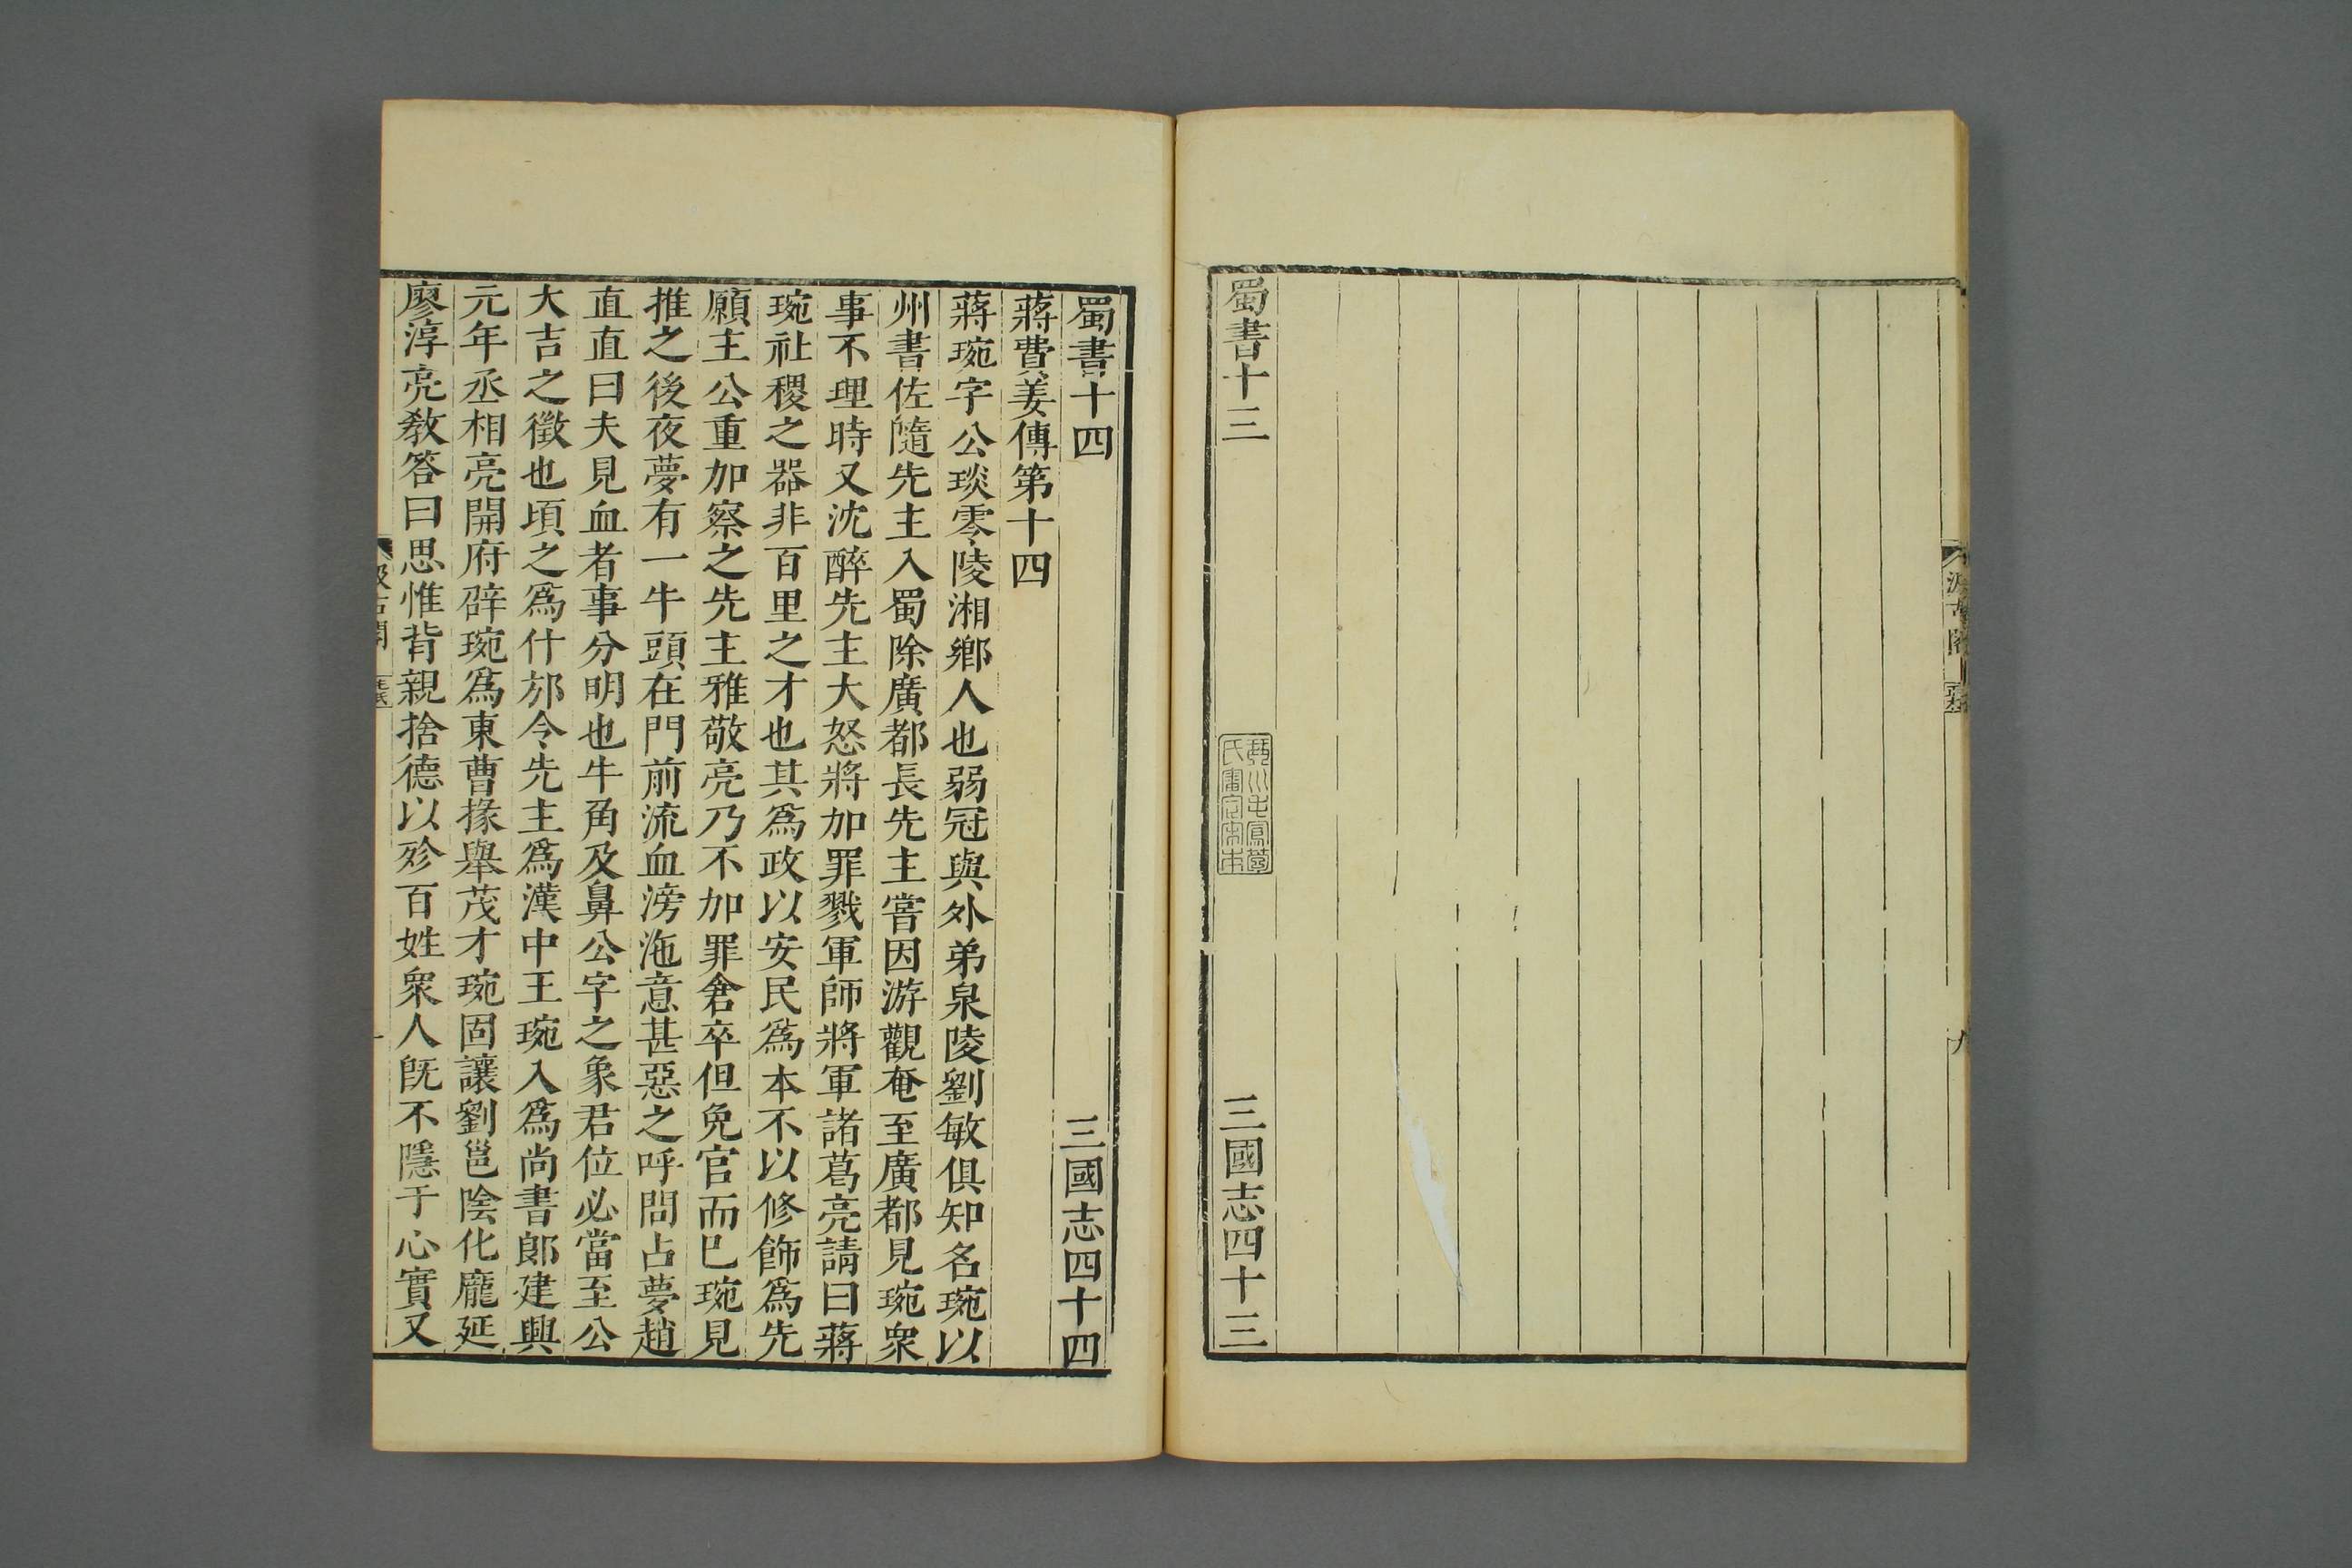 蜀書十三
三國志四十三
蜀書十四
三國志四十四
蔣費姜傳第十四
蔣琬字公琰零陵湘鄉人也弱冠與外弟泉陵劉敏俱知名琬以
州書佐隨先主入蜀除廣都長先主嘗因游觀奄至廣都見琬衆
事不理時又沈醉先主大怒將加罪戮軍師將軍諸葛亮請曰蔣
琬社稷之器非百里之才也其爲政以安民爲本不以修飾爲先
願主公重加察之先主雅敬亮乃不加罪倉卒但免官而已琬見
推之後夜夢有一牛頭在門前流血滂沲意甚惡之呼問占夢趙
直直曰夫見血者事分明也牛角及鼻公字之象君位必當至公
大吉之徵也頃之爲什邡令先主爲漢中王琬入爲尚書郎建興
元年丞相亮開府辟琬爲東曹掾舉茂才琬固讓劉邕陰化龐延
廖淳亮教答曰思惟背親捨德以殄百姓衆人旣不隱于心實又